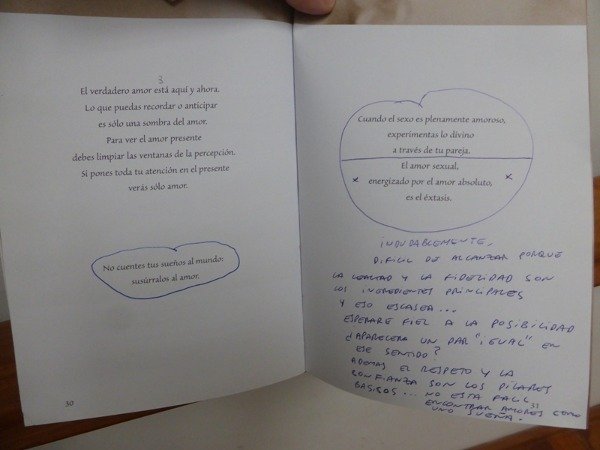 3.
El verdadero amor está aquí y ahora.
Lo que puedas recordar o anticipar
es sólo una sombra del amor.
Para ver el amor presente
debes limpiar las ventanas de la percepción.
Si pones toda tu atención en el presente
verás sólo amor.
No cuentes tus sueños al mundo:
susúrralos al amor.
30
Cuando el sexo es plenamente amoroso,
experimentas lo divino
a través de tu pareja.
El amor sexual,
energizado por el amor absoluto,
es el éxtasis.
INDUDABLEMENTE,
DIFICIL DE ALCANZAR PORQUE
LA LEALTAD Y LA FIDELIDAD SON
LOS INGREDIENTES PRINCIPALES
Y ESO ESCASEA...
ESPERARE FIEL A LA POSIBILIDAD
¿APARECERA UN PAR "IGUAL" EN
ESE SENTIDO?
ADEMAS EL RESPETO Y LA
CONFIANZA SON LOS PILARES
BASICOS... NO ESTA FACIL
ENCONTRAR AMORES COMO
UNO SUEÑA.
31